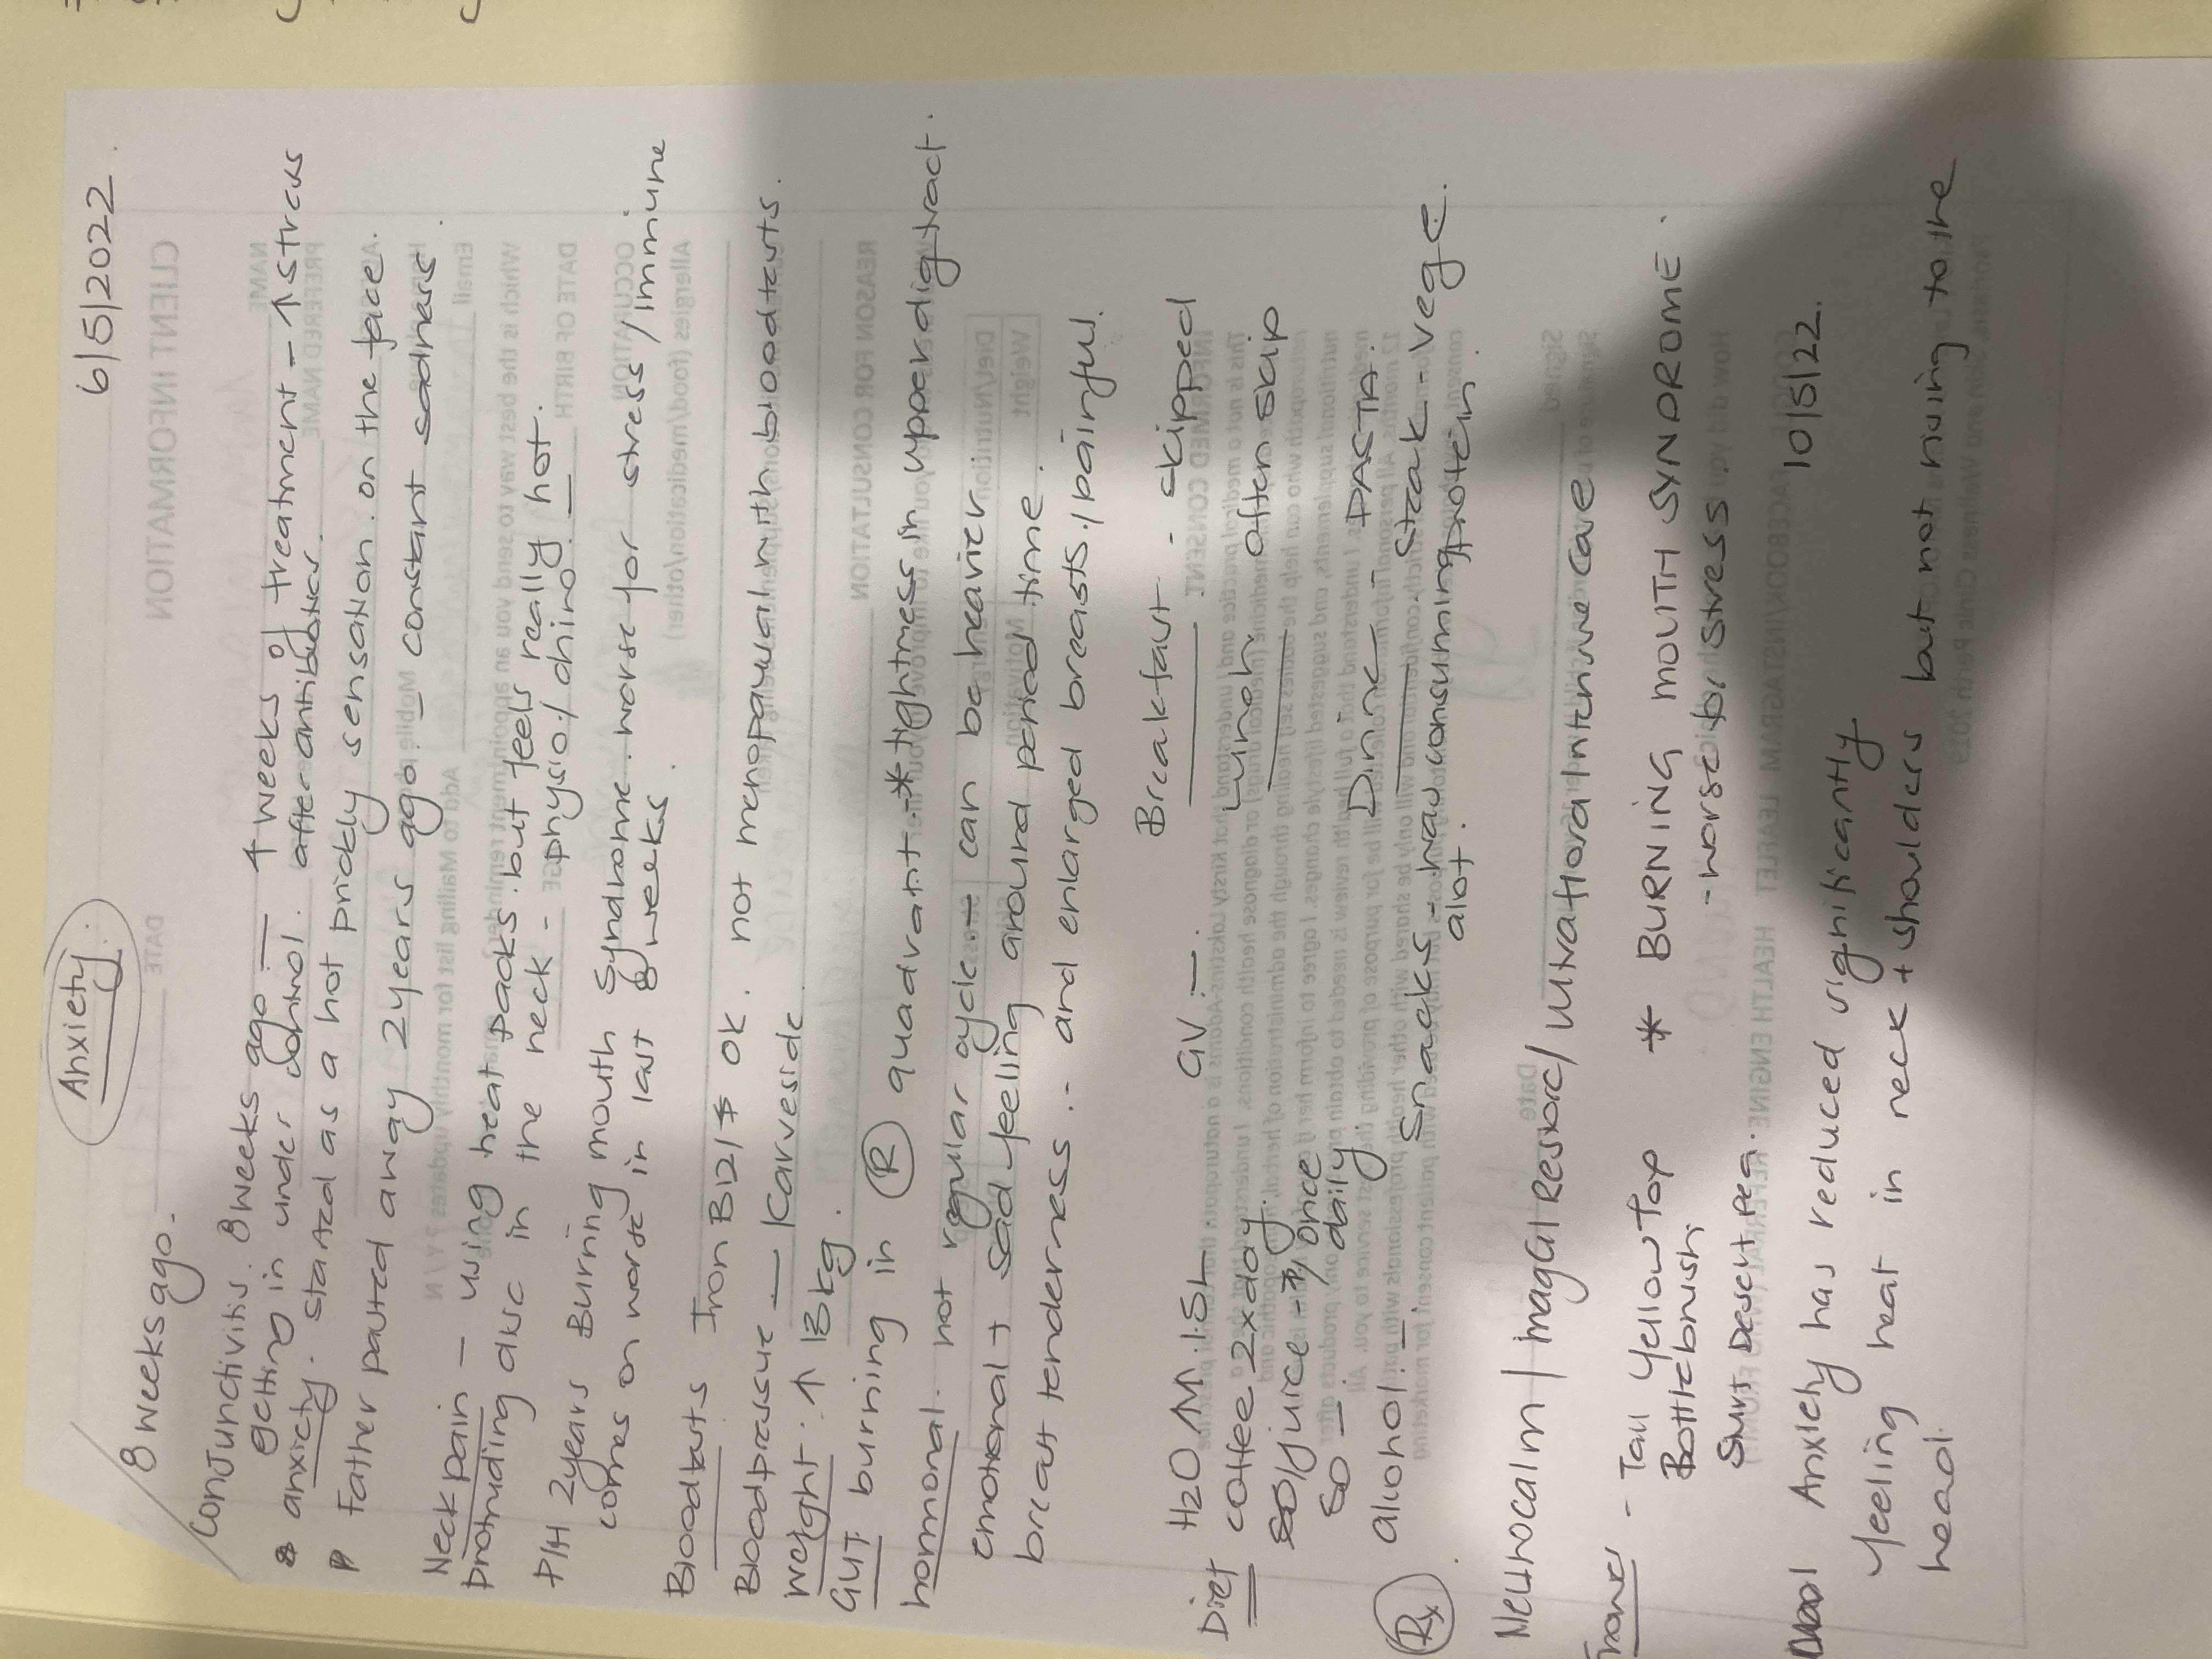 Anxiety. 6/5/2022
8 weeks ago.
Conjunctivitis. 8 weeks ago — 4 weeks of treatment - ↑ stress
getting in under control. after antibiotics
anxiety. started as a hot prickly sensation. on the face.
Father passed away 2 years ago - constant sadness.
Neck pain - using heat packs. but feels really hot.
protruding disc in the neck - physio./chiro.
P/H 2 years Burning mouth Syndrome. worse for stress/immune
comes on worse in last 8 weeks.
Bloodtests Iron B12/ ok. not menopausal with bloodtests.
Blood pressure — Karveside
weight: ↑ 13kg.
GUT burning in (R) quadrant - * tightness in upper dig tract.
hormonal. not regular cycle - can be heavier
emotional + sad feeling around period time.
breast tenderness. - and enlarged breasts / painful.
Diet H2O ↑M 1.5L GV: —. Breakfast - skipped
coffee 2xday. Lunch. often skip
juice - once Dine - PASTA.
daily Steak - vege
alcohol: - Snacks - has consumming protein
alot.
(Rx)
Neurocalm / MagGIRestore / Ultraflora Intensive care.
- Tall Yellow Top * BURNING MOUTH SYNDROME.
Bottlebrush, - worse for stress.
Sturt Desert Pea.
10/5/22.
Anxiety has reduced significantly
feeling heat in neck + shoulders but not rising to the
head.
CLIENT INFORMATION
DATE
NAME
PREFERED NAME
Email
DATE OF BIRTH
OCCUPATION
Allergies (food/medication/other)
REASON FOR CONSULTATION
Weight
Diet/Nutrition
Motivation
INFORMED CONSENT
Signed
Date